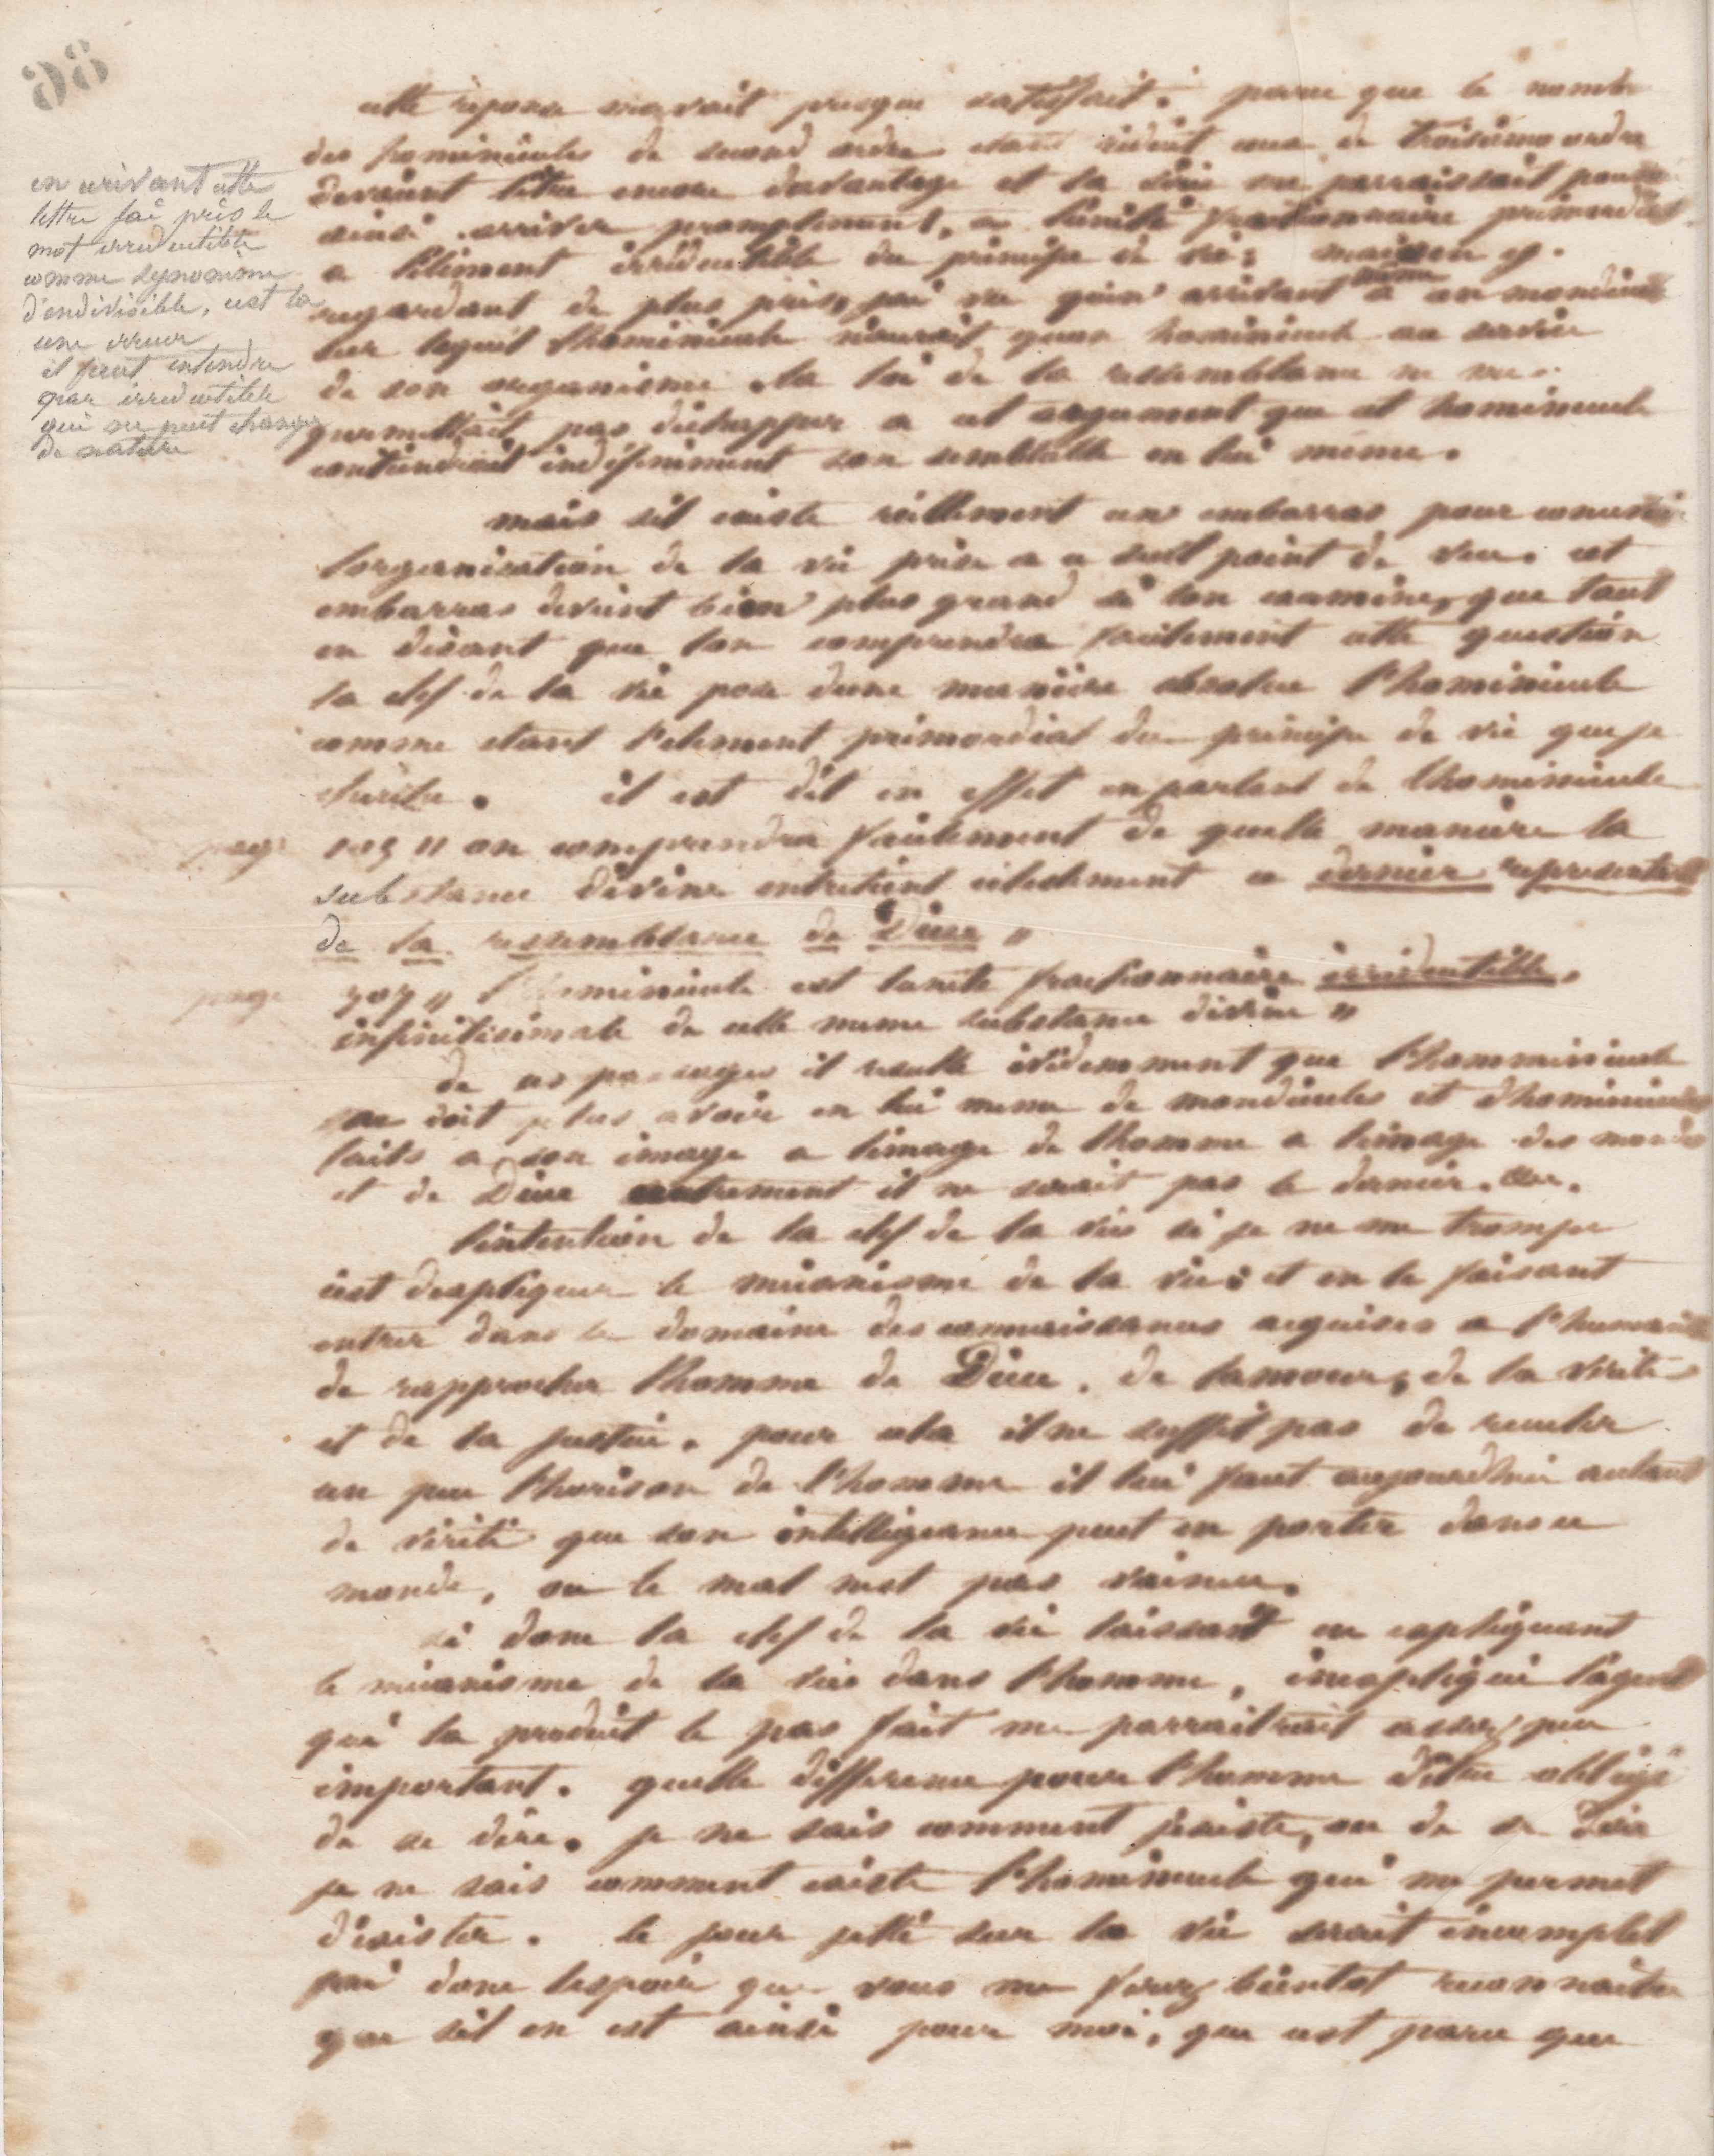 98
en ecrivant cette
lettre jai pris le
mot irreductible
comme synonime
d'endivisible, cest la
une erreur
il faut entendre
par irreductible
qui ne peut changer
de nature
cette reponse m'avait presque satisfait. parce que le nombre
des hominicules de second ordre etant reduit ceux de troisieme ordre
devaient l'etre encore davantage et la serie me parraissait pouvoir
ainsi arriver promptement, a l'unité fractionnaire primordial
a l'element irreductible du principe de vie; mais en y
regardant de plus pres, jai vu qu'en arrivant même a un mondicule
sur lequel l'hominicule n'aurait qu'un hominicule au service
de son organisme. la loi de la ressemblance ne me
permettait pas d'echapper a cet argument que cet hominicule
contiendrait indefiniment son semblable en lui même.
mais sil existe reellement un embarras pour concevoir
l'organisation de la vie prise a ce seul point de vue. cet
embarras devient bien plus grand si lon examine, que tout
en disant que lon comprendra facilement cette question
la clef de la vie pose dune manière absolue l'hominicule
comme etant l'element primordial du principe de vie que je
cherche. il est dit en effet en parlant de l'hominicule
page 505 " on comprendra facilement de quelle manière la
substance divine entretient celestement ce dernier representant
de la ressemblance de Dieu "
page 707 " l'hominicule est l'unite fractionnaire irreductible,
infinitesimale de cette meme substance divine "
de ces passages il resulte evidemment que l'homminicule
ne doit plus avoir en lui meme de mondicules et d'hominicules
faits a son image a l'image de l'homme a l'image des mondes
et de Dieu autrement il ne serait pas le dernier.
l'intention de la clef de la vie si je ne me trompe
est dexpliquer le mecanisme de la vie; et en le faisant
entrer dans le domaine des connaissances acquises a l'humanité
de rapprocher l'homme de Dieu, de lamour, de la verité
et de la justice. pour cela il ne suffit pas de reculer
un peu l'horison de l'homme il lui faut aujourdhui autant
de verité que son intelligeance peut en porter dans ce
monde, ou le mal nest pas vaincu.
si donc la clef de la vie laissait en expliquant
le mecanisme de la vie dans l'homme, inexpliqué l'agent
qui la produit le pas fait me parraitrait assez peu
important. quelle difference pour l'homme d'etre obligé
de se dire. je ne sais comment j'existe, ou de se dire
je ne sais comment existe l'hominicule qui me permet
d'exister. le jour jetté sur la vie serait incomplet
jai donc lespoir que vous me ferez bientot reconnaitre
que sil en est ainsi pour moi, que cest parce que